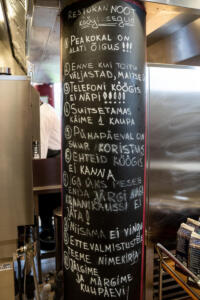 RESTORAN NOOT
köögi reeglid
① PEAKOKAL ON
ALATI ÕIGUS!!!
② ENNE KUI TOITU
VÄLJASTAD, MAITSE!
③ TELEFONI KÖÖGIS
EI NÄPI
④ SUITSETAMAS
KÄIME 1 KAUPA
⑤ PÜHAPÄEVAL ON
SUUR KORISTUS
⑥ EHTEID KÖÖGIS
EI KANNA
⑦ IGAÜKS PESEB
ENDA JÄRGI
KAUSSI EI
JÄTA!
⑧ NIISAMA EI VINGU
⑨ ETTEVALMISTUSTE
TEEME NIMEKIRJA
JÄLGIME
JA MÄRGIME
KUUPÄEVI!